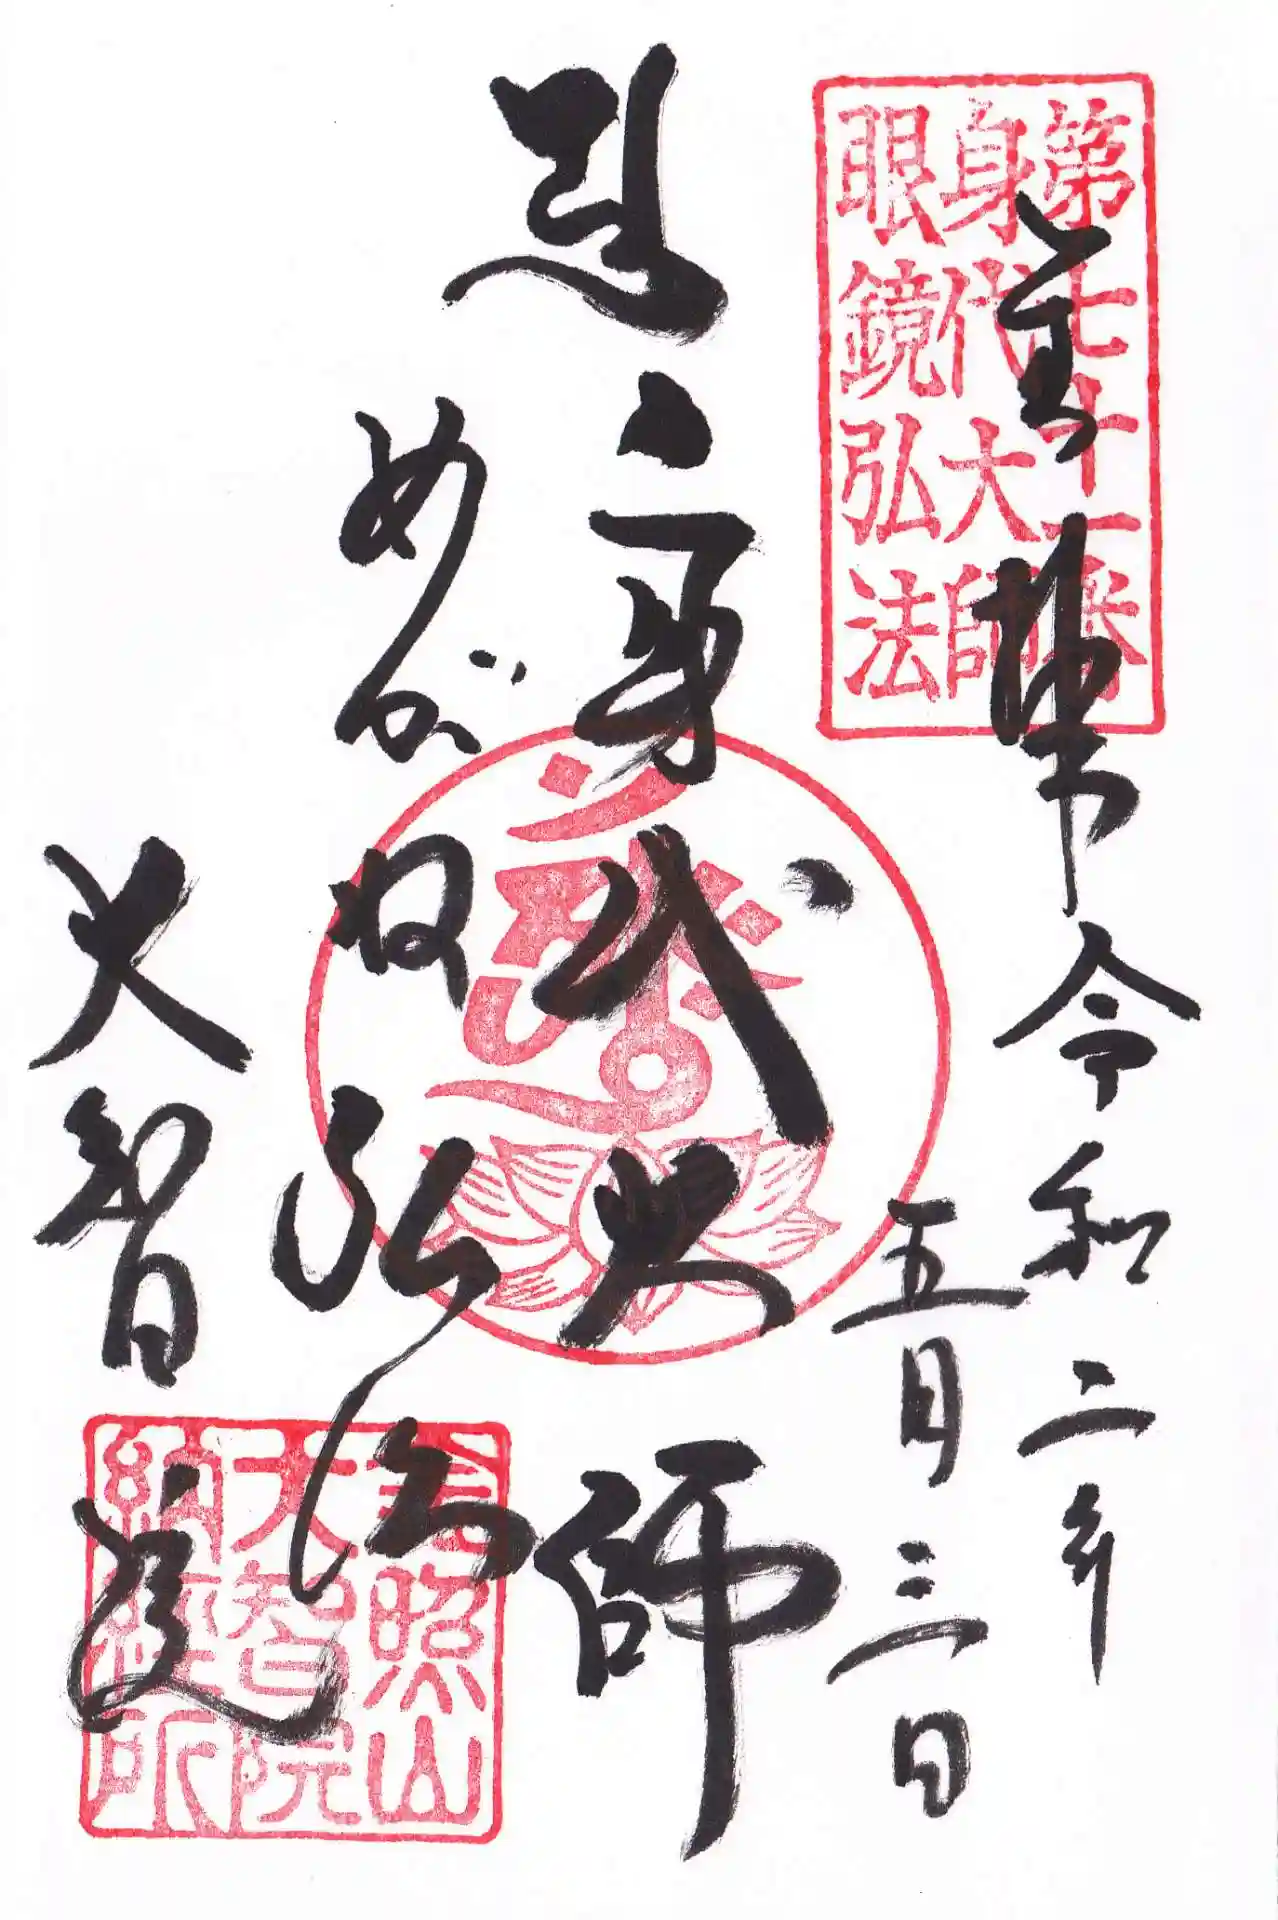 第七十一番
身代大師
眼鏡弘法
令和二年
五月三日
身代大師
めがね弘法
大智院
金照山
大智院
納経所